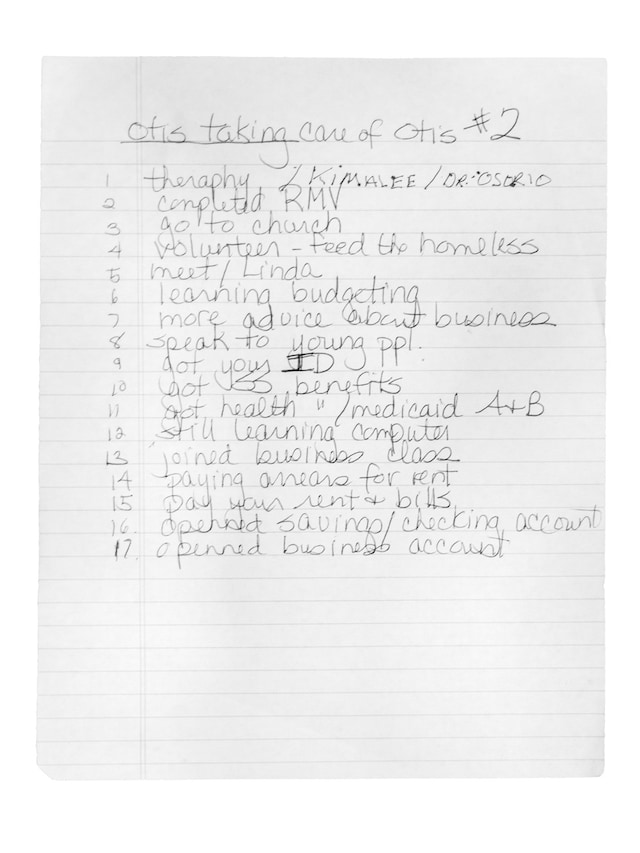 Otis taking care of Otis #2
1 theraphy / KIMALEE / DR. OSORIO
2 completed RMV
3 go to church
4 volunteer - feed the homeless
5 meet / Linda
6 learning budgeting
7 more advice about business
8 speak to young ppl.
9 got your ID
10 got SS benefits
11 got health " / medicaid A+B
12 still learning computer
13 joined business class
14 paying arrears for rent
15 pay your rent + bills
16. openned savings / checking account
17. openned business account